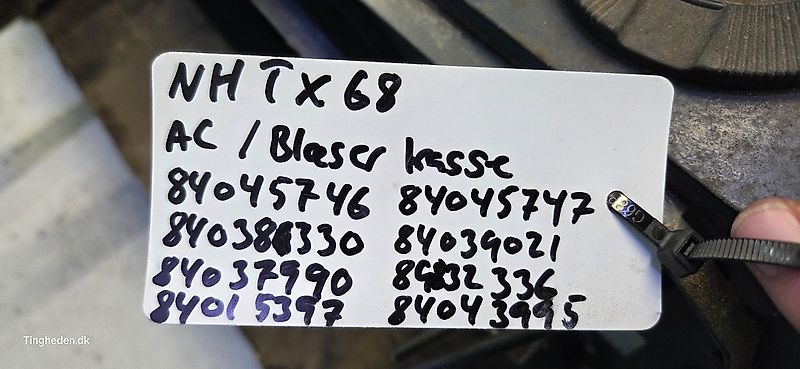 NH TX 68
AC / Blæser kasse
84045746 84045747
84038330 84039021
84037990 89832336
84015397 84043995
Tingheden.dk